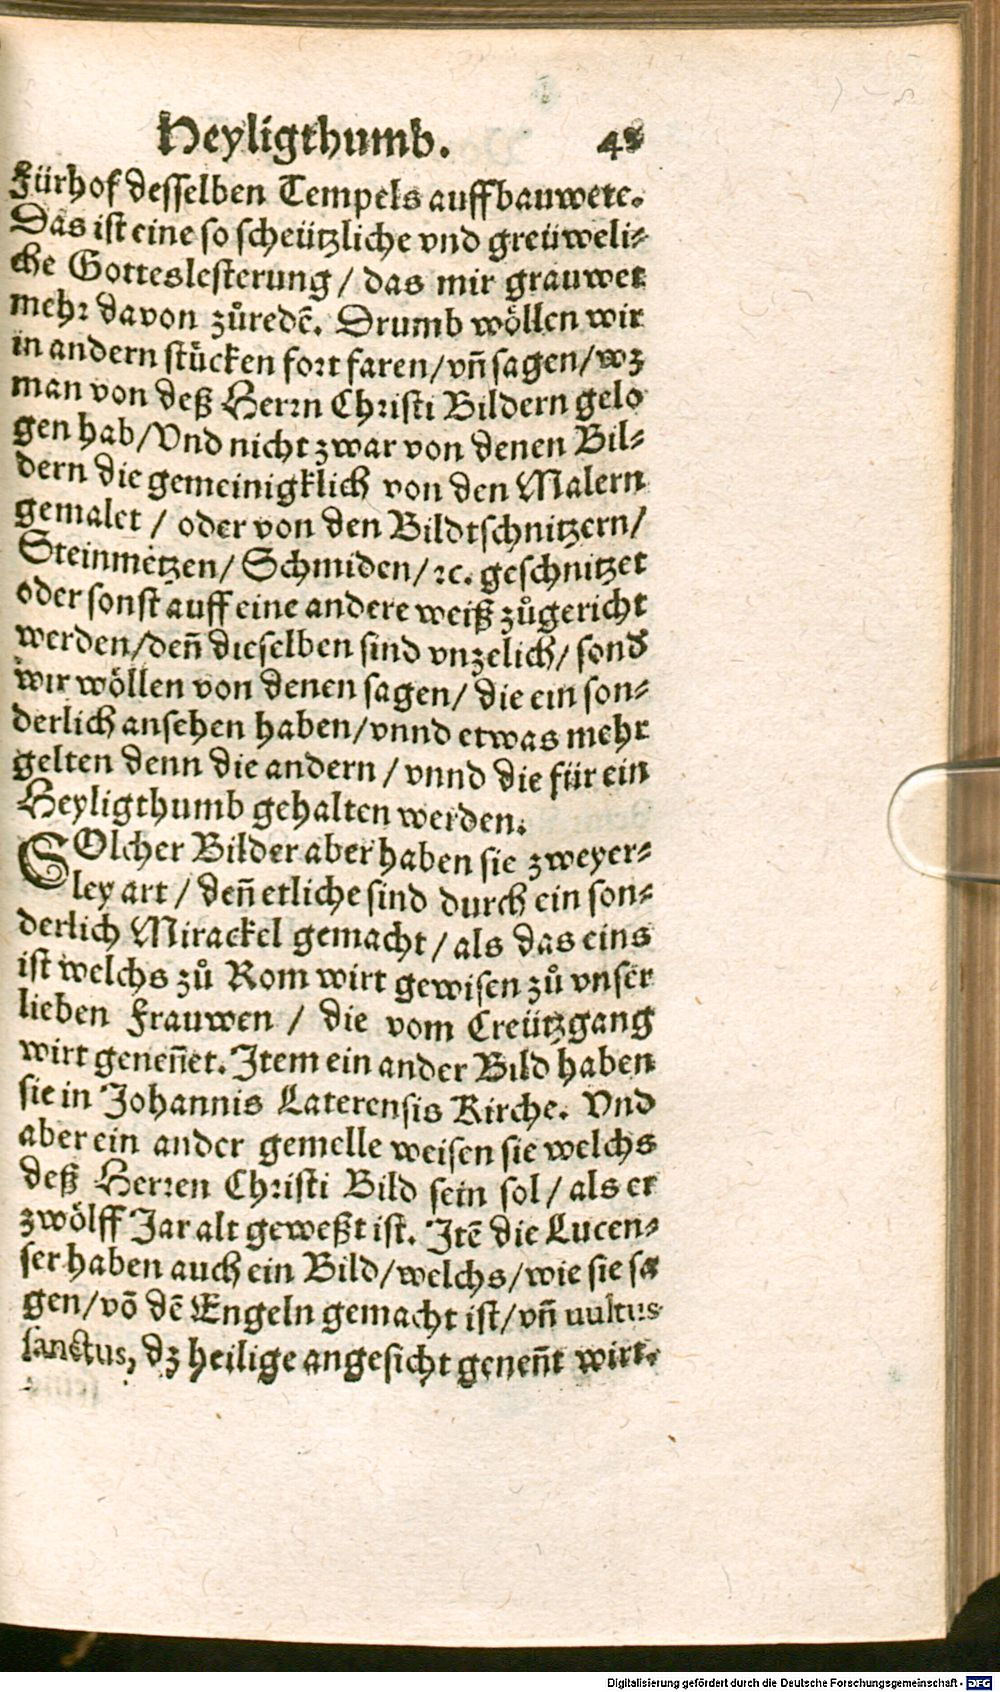 Heyligthumb.
Fürhof desselben Tempels auffbauwete.
Das ist eine so scheützliche vnd greüweli⸗
che Gotteslesterung / das mir grauwet
mehr davon zůredē. Drumb wöllen wir
in andern stücken fort faren/vn̄ sagen/wz
man von deß Herrn Christi Bildern gelo
gen hab/Vnd nicht zwar von denen Bil⸗
dern die gemeinigklich von den Malern
gemalet / oder von den Bildtschnitzern/
Steinmetzen/ Schmiden/ ꝛc. geschnitzet
oder sonst auff eine andere weiß zůgericht
werden/den̄ dieselben sind vnzelich/ sond̛
wir wöllen von denen sagen/ die ein son⸗
derlich ansehen haben/vnnd etwas mehr
gelten denn die andern / vnnd die für ein
Heyligthumb gehalten werden.
SOlcher Bilder aber haben sie zweyer⸗
ley art / den̄ etliche sind durch ein son⸗
derlich Mirackel gemacht / als das eins
ist welchs zů Rom wirt gewisen zů vnser
lieben Frauwen / die vom Creützgang
wirt genen̄et. Item ein ander Bild haben
sie in Johannis Laterensis Kirche. Vnd
aber ein ander gemelle weisen sie welchs
deß Herren Christi Bild sein sol / als er
zwölff Jar alt geweßt ist. Itē die Lucen⸗
ser haben auch ein Bild/welchs/wie sie sa
gen/vō dē Engeln gemacht ist/vn̄ uultus
sanctus, dz heilige angesicht genen̄t wirt.
Digitalisierung gefördert durch die Deutsche Forschungsgemeinschaft - DFG